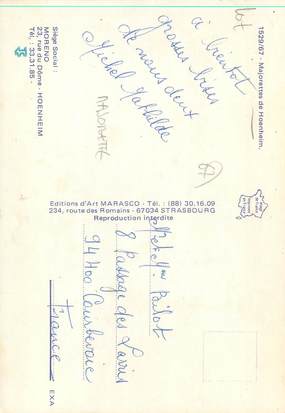 1529/67 - Majorettes de Hoenheim.
67
à bientôt
grosses bises
de nous deux
Michel Mathilde
MAJORETTE
67
Siège Social :
MORENO
23, rue du Dôme - HOENHEIM
Tél. : 33.31.85 -
Editions d'Art MARASCO - Tél. : (88) 30.16.09
234, route des Romains - 67034 STRASBOURG
Reproduction interdite
8 Passage des
94400 Courbevoie
France
EXA